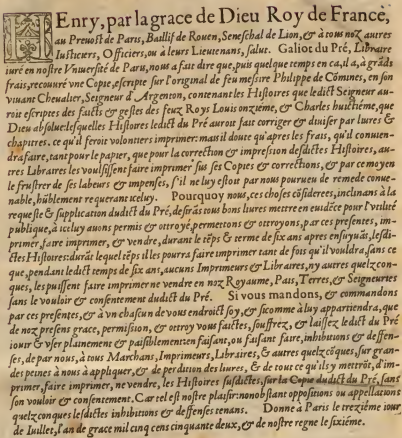 HEnry, par la grace de Dieu Roy de France,
au Preuost de Paris, Baillif de Rouen, Seneschal de Lion, & à tous noz autres
Iusticiers, Officiers, ou à leurs Lieutenans, salut. Galiot du Pré, Libraire
iuré en nostre Vniuersité de Paris, nous a fait dire que, puis quelque temps en ça, il a, à grãds
frais, recouuré vne Copie, escripte sur l'original de feu mesire Philippe de Cõmines, en son
viuant Cheualier, Seigneur d'Argenton, contenant les Histoires que ledict Seigneur au-
roit escriptes des faicts & gestes des feuz Roys Louis onziéme, & Charles huictiéme, que
Dieu absolue: lesquelles Histoires ledict du Pré auroit fait corriger & diuiser par liures &
chapitres. ce qu'il feroit volontiers imprimer: mais il doute qu'apres les frais, qu'il conuien-
dra faire, tant pour le papier, que pour la correction & impression desdictes Histoires, au-
tres Libraires les voulsissent faire imprimer sus ses Copies & corrections, & par ce moyen
le frustrer de ses labeurs & impenses, s'il ne luy estoit par nous pourueu de remede conue-
nable, hũblement requerant iceluy. Pourquoy nous, ces choses cõsiderees, inclinans à la
requeste & supplication dudict du Pré, desirãs tous bons liures mettre en euidẽce pour l'vtilité
publique, à iceluy auons permis & ottroyé, permettons & ottroyons, par ces presentes, im-
primer, faire imprimer, & vendre, durant le tẽps & terme de six ans apres ensuyuãs, lesdi-
ctes Histoires: durãt lequel tẽps il les pourra faire imprimer tant de fois qu'il vouldra, sans ce
que, pendant ledict temps de six ans, aucuns Imprimeurs & Libraires, ny autres quelzcon-
ques, les puissent faire imprimer ne vendre en noz Royaume, Païs, Terres, & Seigneuries
sans le vouloir & consentement dudict du Pré. Si vous mandons, & commandons
par ces presentes, & à vn chascun de vous endroict soy, & sicomme à luy appartiendra, que
de noz presens grace, permission, & ottroy vous faictes, souffrez, & laissez ledict du Pré
iouir & vser plainement & paisiblement: en faisant, ou faisant faire, inhibitions & deffen-
ses, de par nous, à tous Marchans, Imprimeurs, Libraires, & autres quelzcõques, sur gran-
des peines à nous à appliquer, & de perdition des liures, & de tout ce qu'ils y mettrõt, d'im-
primer, faire imprimer, ne vendre, les Histoires susdictes, sur la Copie dudict du Pré, sans
son vouloir & consentement. Car tel est nostre plaisir: nonobstant oppositions ou appellations
quelzconques lesdictes inhibitions & deffenses tenans. Donné à Paris le trezième iour
de Iuillet, l'an de grace mil cinq cens cinquante deux, & de nostre regne le sixième.